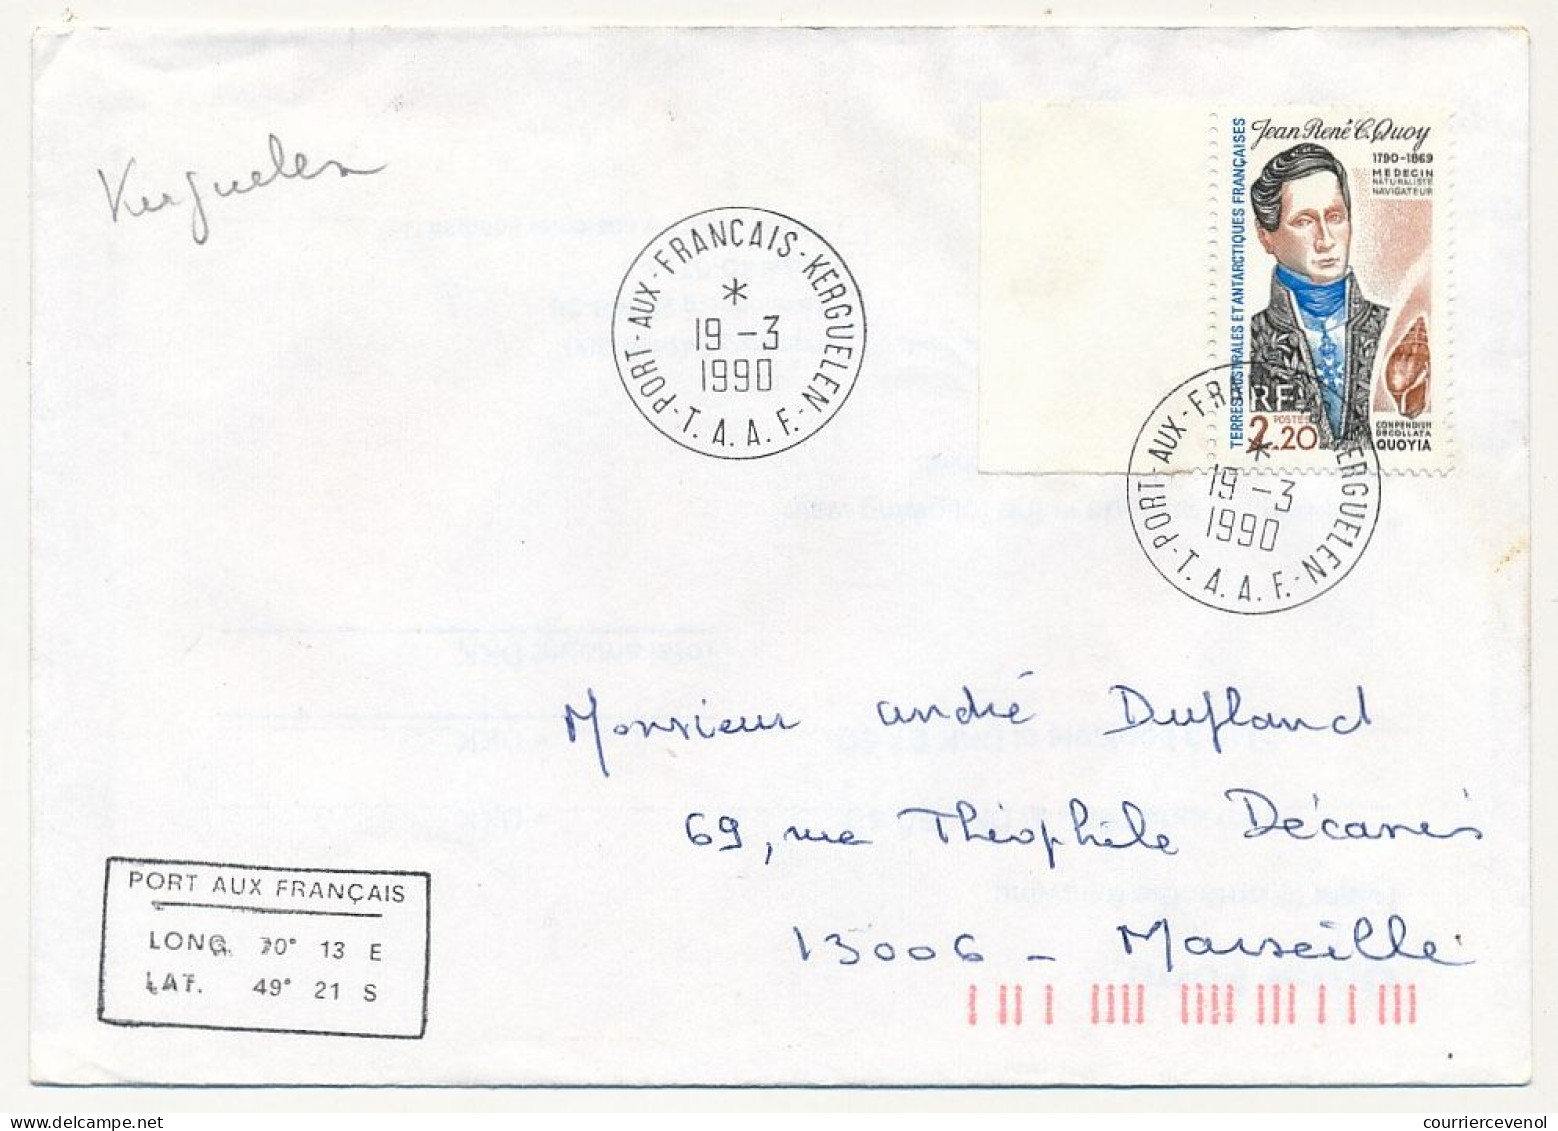 Kerguelen
PORT-AUX-FRANÇAIS-KERGUELEN
*
19-3
1990
-T.A.A.F.-
TERRES AUSTRALES ET ANTARCTIQUES FRANÇAISES
Jean René C. Quoy
1790-1869
MEDECIN
NATURALISTE
NAVIGATEUR
RF
POSTES
2.20
COMPENDIUM
DECOLLATA
QUOYIA
PORT-AUX-FRANÇAIS-KERGUELEN
*
19-3
1990
-T.A.A.F.-
Monsieur andré Dufland
69, rue Théophile Décanis
13006 - Marseille
PORT AUX FRANÇAIS
LONG. 70° 13 E
LAT. 49° 21 S
courriercevenol